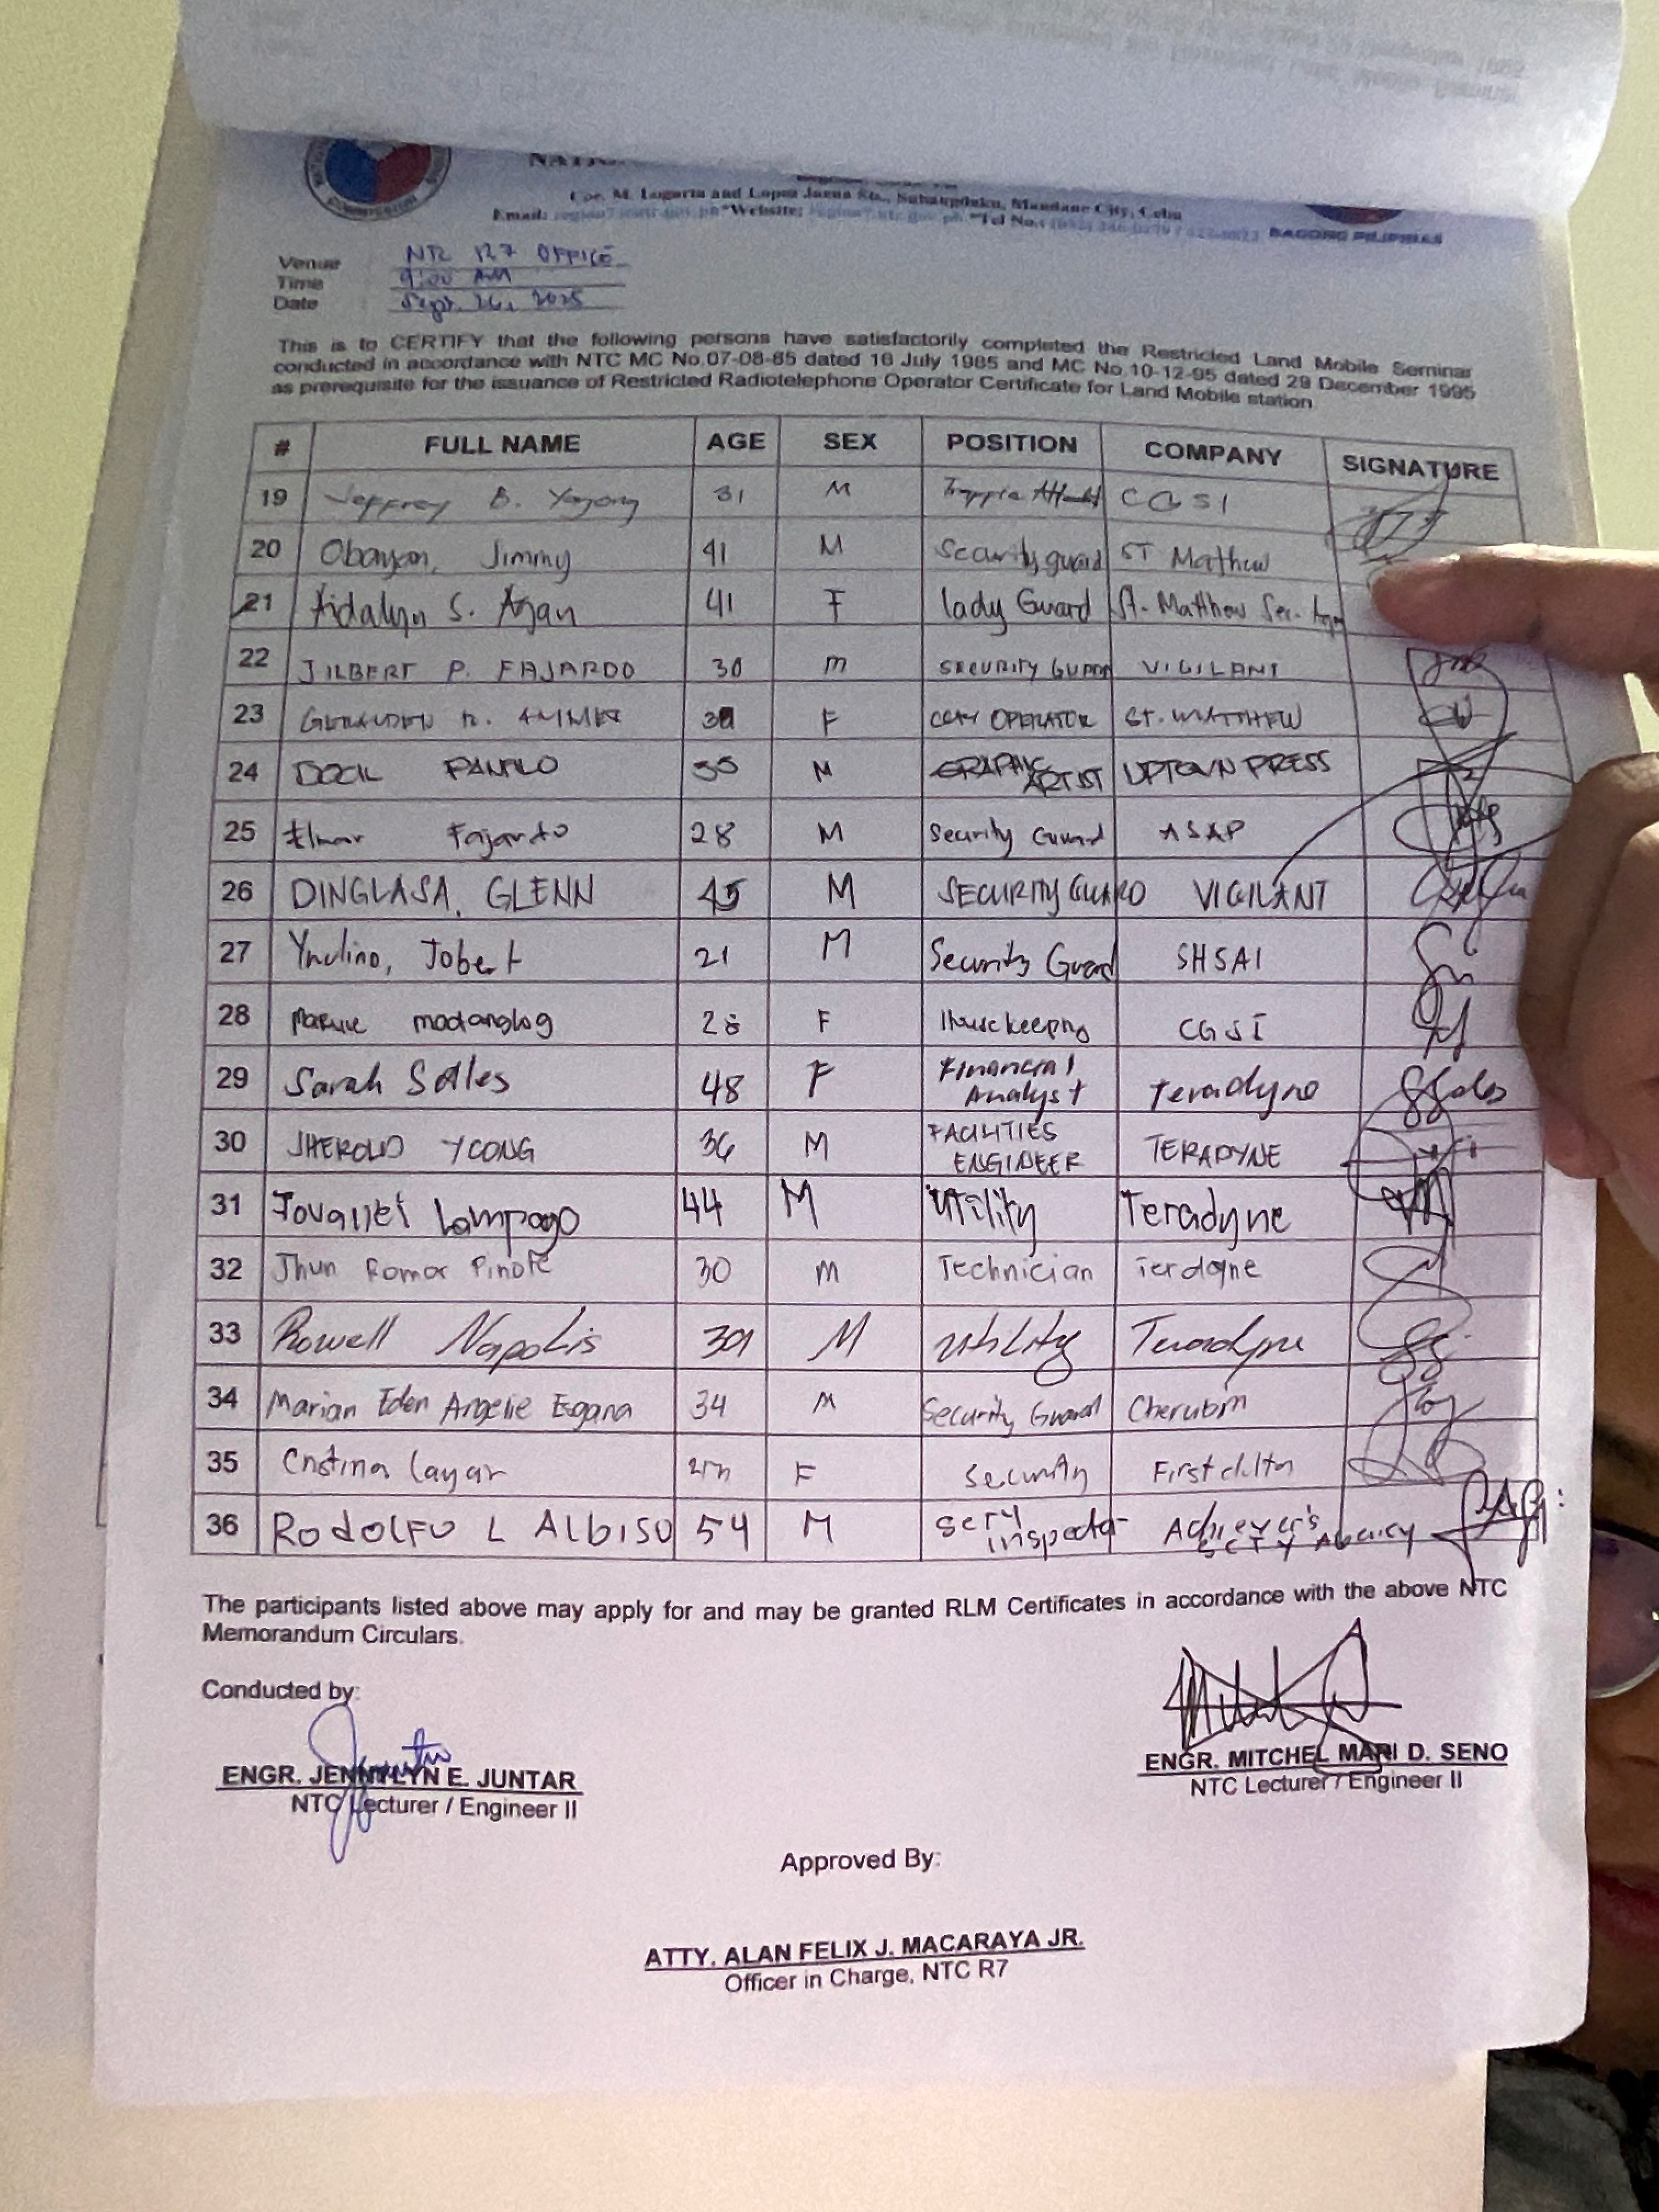 Cor. M. Logarta and Lopez Jaena Sts., Subangdaku, Mandaue City, Cebu
Email: *Website: *Tel No.:
COMMISSION
BAGONG PILIPINAS
Venue NTC R7 OFFICE
Time 9:00 AM
Date Sept. 26, 2025
This is to CERTIFY that the following persons have satisfactorily completed the Restricted Land Mobile Seminar
conducted in accordance with NTC MC No.07-08-85 dated 16 July 1985 and MC No.10-12-95 dated 29 December 1995
as prerequisite for the issuance of Restricted Radiotelephone Operator Certificate for Land Mobile station
# FULL NAME AGE SEX POSITION COMPANY SIGNATURE
19 Jeffrey B. Yagong 31 M CGSI
20 Obayan, Jimmy 41 M Security guard ST Matthew
21 Aidalyn S. Agan 41 F lady Guard St. Matthew Sec.
22 JILBERT P. FAJARDO 30 m SECURITY GUARD VIGILANT
23 F OPERATOR ST. MATTHEW
24 PANFILO M GRAPHIC ARTIST UPTOWN PRESS
25 Elmar Fajardo 28 M Security Guard ASAP
26 DINGLASA, GLENN 45 M SECURITY GUARD VIGILANT
27 Jobert 21 M Security Guard SHSAI
28 madanglog F Housekeeping CGSI
29 Sarah Salles 48 F Financial Analyst Teradyne
30 JHEROLD YCONG 36 M FACILITIES ENGINEER TERADYNE
31 Lampago 44 M Utility Teradyne
32 Jhun Romar Pinote 30 m Technician Terdyne
33 Rowell Napolis M Utility Teradyne
34 Marian Eden Angelie Egana 34 M Security Guard Cherubim
35 Cristina Layar F Security First delta
36 RODOLFO L ALBISO 54 M inspector Achiever's SCTY Agency
The participants listed above may apply for and may be granted RLM Certificates in accordance with the above NTC
Memorandum Circulars.
Conducted by:
ENGR. JENNYLYN E. JUNTAR
NTC Lecturer / Engineer II
ENGR. MITCHEL MARI D. SENO
NTC Lecturer / Engineer II
Approved By:
ATTY. ALAN FELIX J. MACARAYA JR.
Officer in Charge, NTC R7